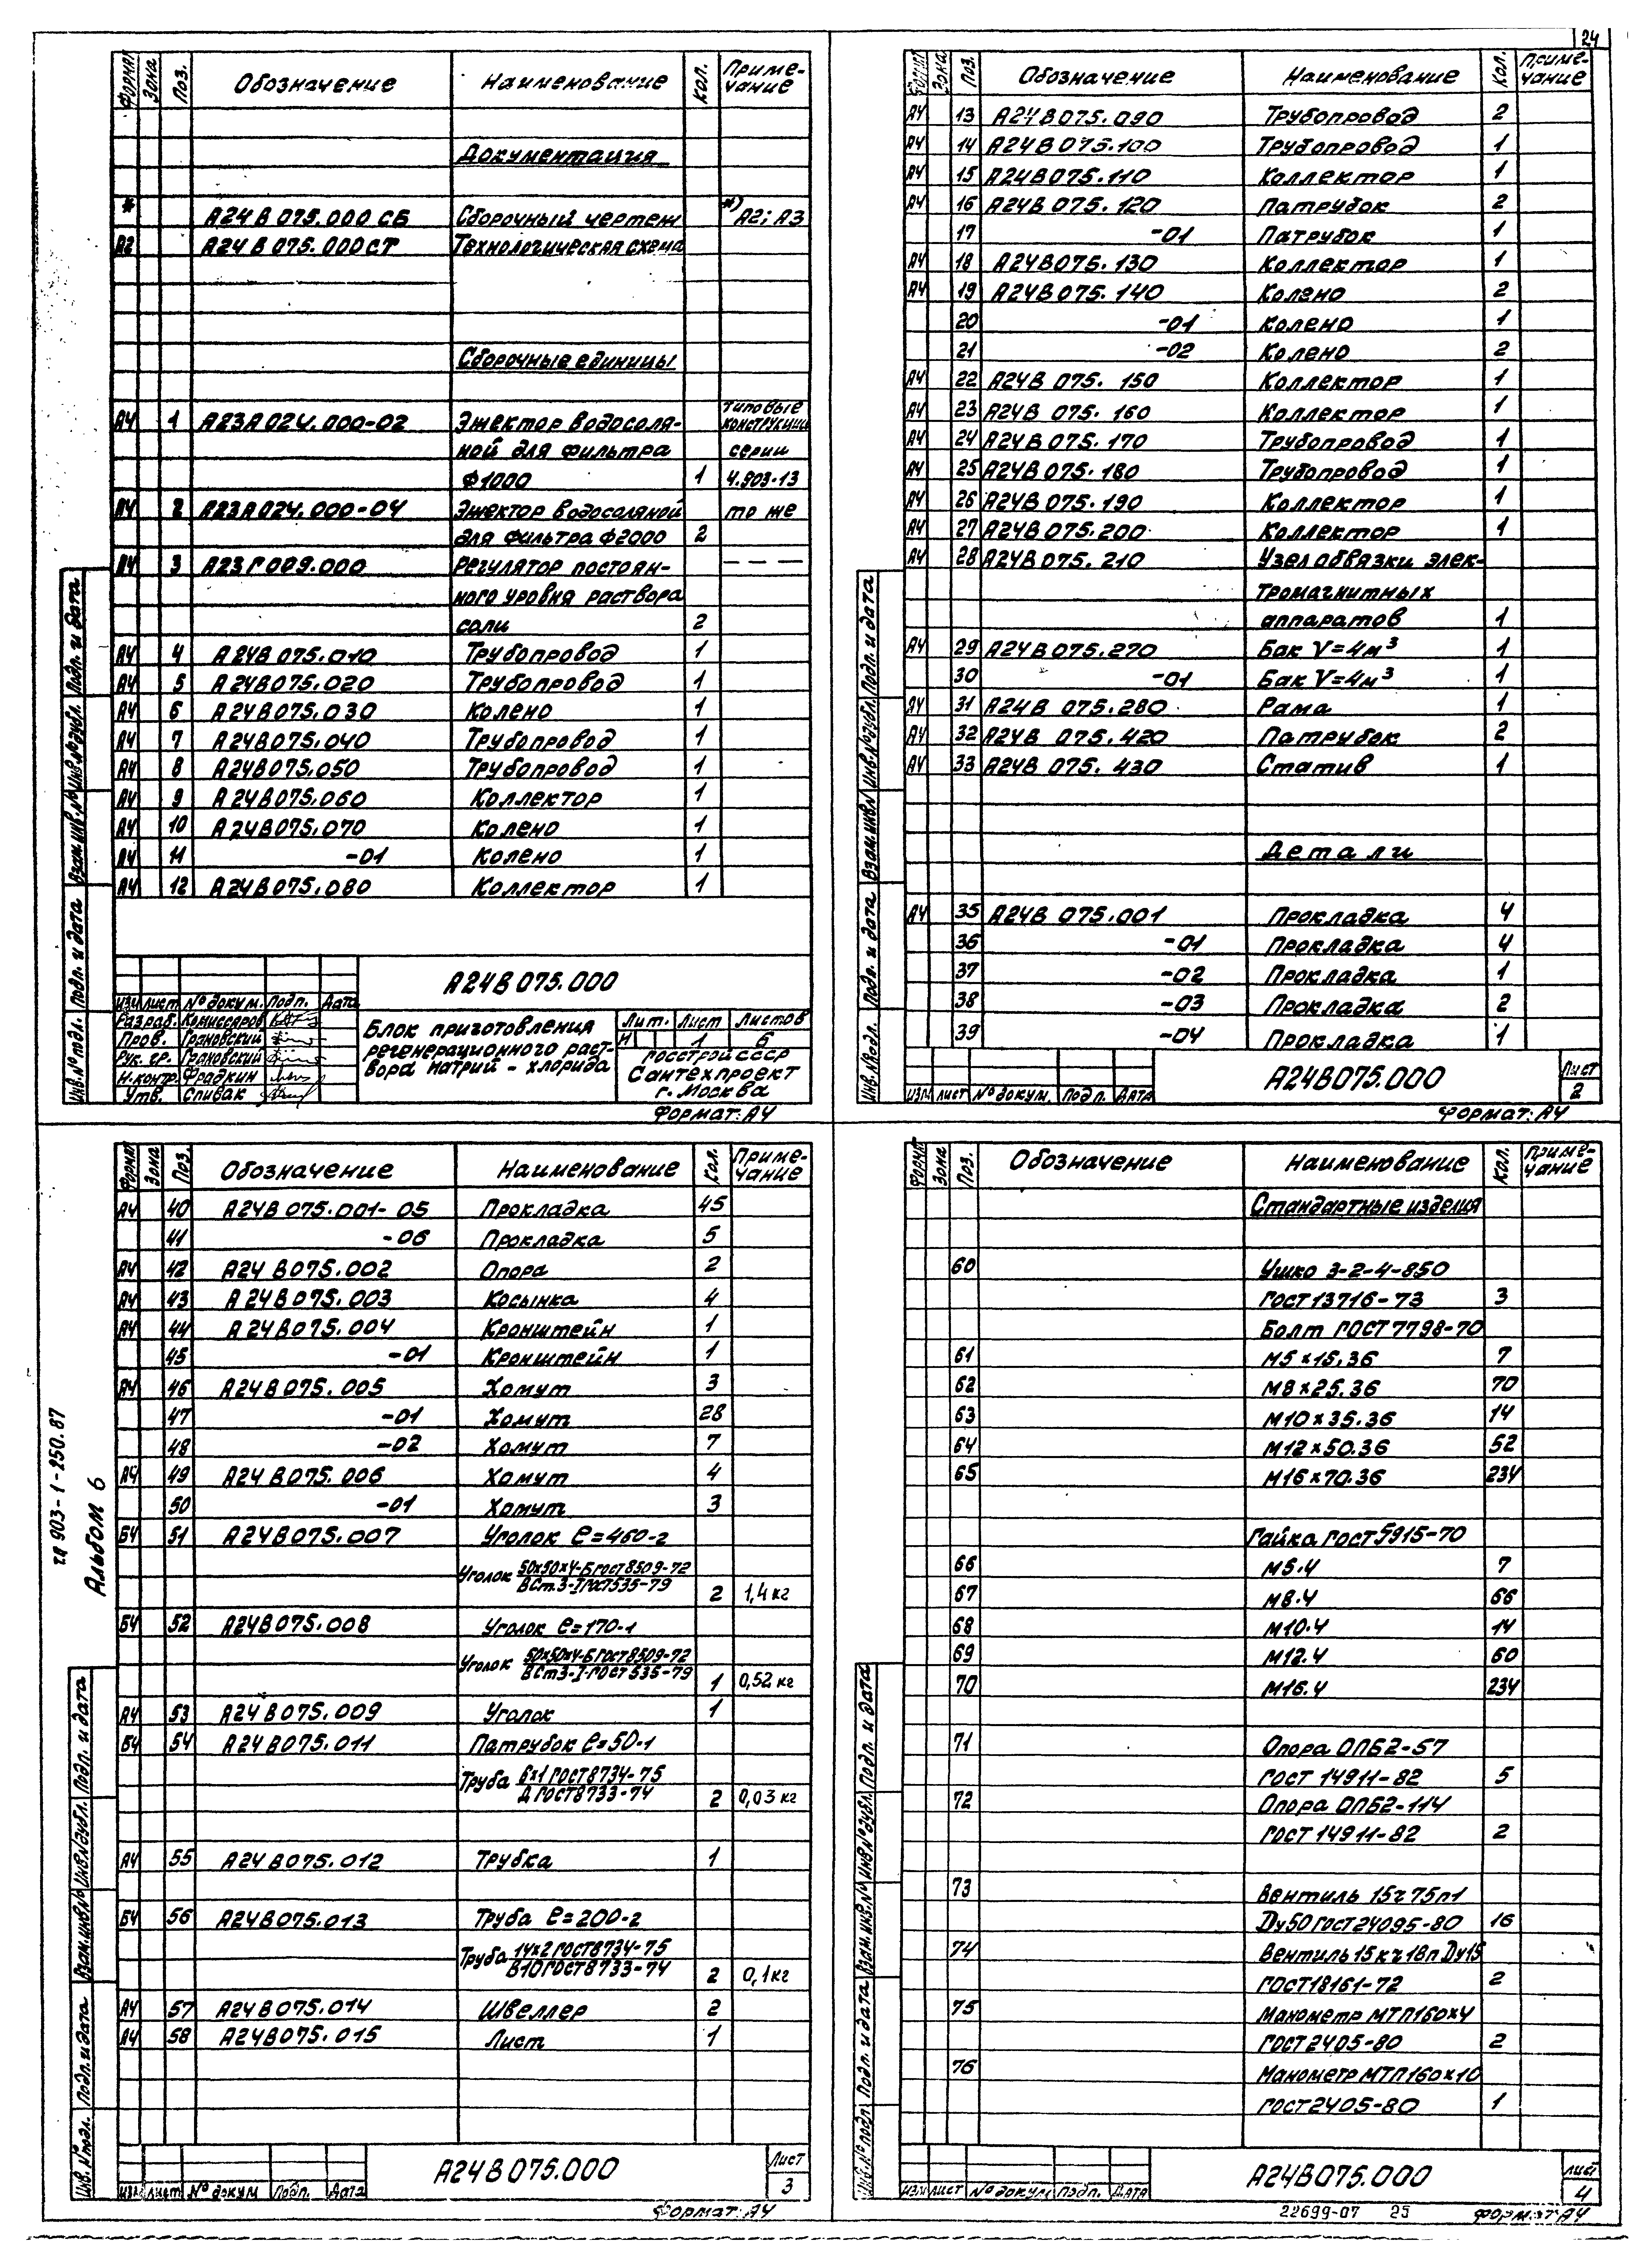 24
Формат Зона Поз. Обозначение Наименование Кол. Приме-
чание
Документация
* А24В075.000СБ Сборочный чертеж *) А2; А3
А2 А24В075.000СТ Технологическая схема
Сборочные единицы
А4 1 А23А024.000-02 Эжектор водосоля- типовые конструкции
ной для фильтра серии
Ф1000 1 4.903-13
А4 2 А23А024.000-04 Эжектор водосоляной то же
для фильтра Ф2000 2
А4 3 А23Г009.000 Регулятор постоян- – – – –
ного уровня раствора
соли 2
А4 4 А24В075.010 Трубопровод 1
А4 5 А24В075.020 Трубопровод 1
А4 6 А24В075.030 Колено 1
А4 7 А24В075.040 Трубопровод 1
А4 8 А24В075.050 Трубопровод 1
А4 9 А24В075.060 Коллектор 1
А4 10 А24В075.070 Колено 1
А4 11 -01 Колено 1
А4 12 А24В075.080 Коллектор 1
Инв.№подл. Подп. и дата Взам.инв.№ Инв.№дубл. Подп. и дата
А24В075.000
Изм Лист №докум. Подп. Дата
Разраб. Комиссаров
Пров. Грановский
Рук. гр. Грановский
Н.контр. Фрадкин
Утв. Спивак
Блок приготовления
регенерационного раст-
вора натрий - хлорида
Лит. Лист Листов
И 1 6
Госстрой СССР
Сантехпроект
г. Москва
Формат: А4
Формат Зона Поз. Обозначение Наименование Кол. Приме-
чание
А4 13 А24В075.090 Трубопровод 2
А4 14 А24В075.100 Трубопровод 1
А4 15 А24В075.110 Коллектор 1
А4 16 А24В075.120 Патрубок 2
17 -01 Патрубок 1
А4 18 А24В075.130 Коллектор 1
А4 19 А24В075.140 Колено 2
20 -01 Колено 1
21 -02 Колено 2
А4 22 А24В075.150 Коллектор 1
А4 23 А24В075.160 Коллектор 1
А4 24 А24В075.170 Трубопровод 1
А4 25 А24В075.180 Трубопровод 1
А4 26 А24В075.190 Коллектор 1
А4 27 А24В075.200 Коллектор 1
А4 28 А24В075.210 Узел обвязки элек-
тромагнитных
аппаратов 1
А4 29 А24В075.270 Бак V=4м³ 1
30 -01 Бак V=4м³ 1
А4 31 А24В075.280 Рама 1
А4 32 А24В075.420 Патрубок 2
А4 33 А24В075.430 Статив 1
Детали
А4 35 А24В075.001 Прокладка 4
36 -01 Прокладка 4
37 -02 Прокладка 1
38 -03 Прокладка 2
39 -04 Прокладка 1
Инв.№подл. Подп. и дата Взам.инв.№ Инв.№дубл. Подп. и дата
Изм Лист №докум. Подп. Дата
А24В075.000
Лист
2
Формат: А4
ТП 903-1-250.87
Альбом 6
Формат Зона Поз. Обозначение Наименование Кол. Приме-
чание
А4 40 А24В075.001-05 Прокладка 45
41 -06 Прокладка 5
А4 42 А24В075.002 Опора 2
А4 43 А24В075.003 Косынка 4
А4 44 А24В075.004 Кронштейн 1
45 -01 Кронштейн 1
А4 46 А24В075.005 Хомут 3
47 -01 Хомут 28
48 -02 Хомут 7
А4 49 А24В075.006 Хомут 4
50 -01 Хомут 3
Б4 51 А24В075.007 Уголок ℓ=460-2
Уголок 50х50х4-Б ГОСТ8509-72
ВСт.3-I ГОСТ535-79 2 1,4 кг
Б4 52 А24В075.008 Уголок ℓ=170-1
Уголок 50х50х4-Б ГОСТ8509-72
ВСт3-I-ГОСТ535-79 1 0,52 кг
А4 53 А24В075.009 Уголок 1
Б4 54 А24В075.011 Патрубок ℓ=50-1
Труба 6х1 ГОСТ8734-75
Д ГОСТ8733-74 2 0,03 кг
А4 55 А24В075.012 Трубка 1
Б4 56 А24В075.013 Труба ℓ=200-2
Труба 14х2 ГОСТ8734-75
В10 ГОСТ8733-74 2 0,1 кг
А4 57 А24В075.014 Швеллер 2
А4 58 А24В075.015 Лист 1
Инв.№подл. Подп. и дата Взам.инв.№ Инв.№дубл. Подп. и дата
Изм Лист №докум Подп. Дата
А24В075.000
Лист
3
Формат: А4
Формат Зона Поз. Обозначение Наименование Кол. Приме-
чание
Стандартные изделия
60 Ушко 3-2-4-850
ГОСТ13716-73 3
Болт ГОСТ7798-70
61 М5х15.36 7
62 М8х25.36 70
63 М10х35.36 14
64 М12х50.36 52
65 М16х70.36 234
Гайка ГОСТ5915-70
66 М5.4 7
67 М8.4 66
68 М10.4 14
69 М12.4 60
70 М16.4 234
71 Опора ОПБ2-57
ГОСТ 14911-82 5
72 Опора ОПБ2-114
ГОСТ 14911-82 2
73 Вентиль 15ч75п1
Dу50 ГОСТ24095-80 16
74 Вентиль 15кч18п Dу15
ГОСТ18161-72 2
75 Манометр МТП160х4
ГОСТ2405-80 2
76 Манометр МТП160х10
ГОСТ2405-80 1
Инв.№подл. Подп. и дата Взам.инв.№ Инв.№дубл. Подп. и дата
Изм Лист №докум. Подп. Дата
А24В075.000
Лист
4
22699-07 25 Формат А4